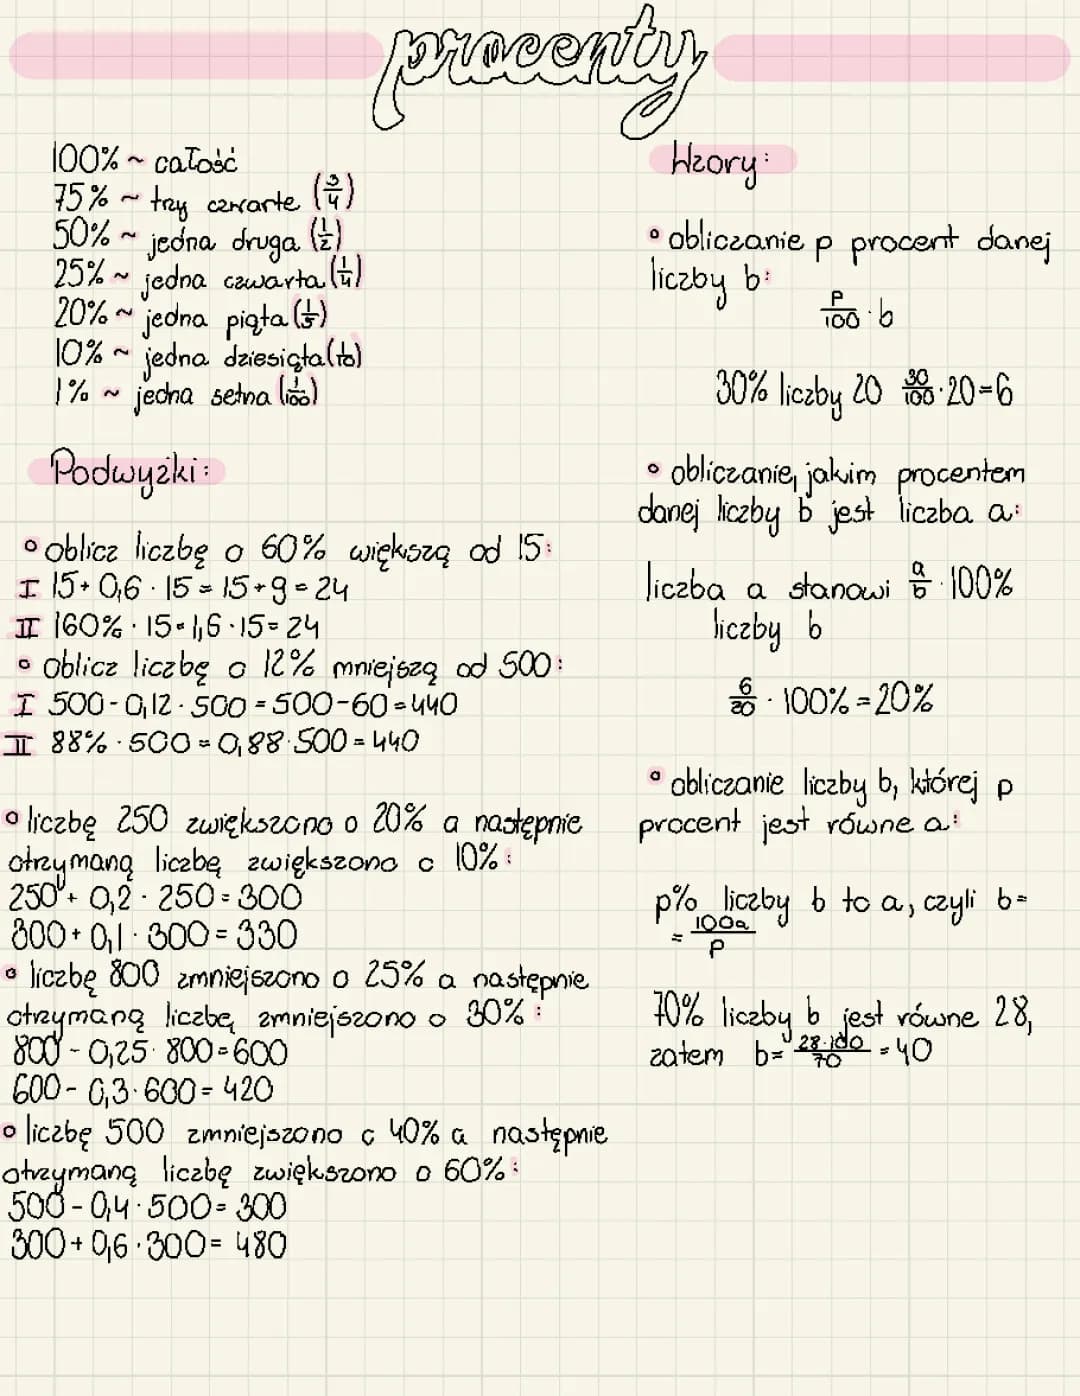 procenty
100% ~ całość
75% ~ trzy czwarte (3/4)
50% ~ jedna druga (1/2)
25% ~ jedna czwarta (1/4)
20% ~ jedna piąta (1/5)
10% ~ jedna dziesiąta (1/10)
1% ~ jedna setna (1/100)
Podwyżki:
° oblicz liczbę o 60% większą od 15:
I 15+0,6·15=15+9=24
II 160%·15=1,6·15=24
° oblicz liczbę o 12% mniejszą od 500:
I 500-0,12·500=500-60=440
II 88%·500=0,88·500=440
° liczbę 250 zwiększono o 20% a następnie
otrzymaną liczbę zwiększono o 10%:
250+0,2·250=300
300+0,1·300=330
° liczbę 800 zmniejszono o 25% a następnie
otrzymaną liczbę zmniejszono o 30%:
800-0,25·800=600
600-0,3·600=420
° liczbę 500 zmniejszono o 40% a następnie
otrzymaną liczbę zwiększono o 60%:
500-0,4·500=300
300+0,6·300=480
Wzory:
° obliczanie p procent danej
liczby b:
p/100 · b
30% liczby 20 30/100·20=6
° obliczanie, jakim procentem
danej liczby b jest liczba a:
liczba a stanowi a/b · 100%
liczby b
6/20 · 100%=20%
° obliczanie liczby b, której p
procent jest równe a:
p% liczby b to a, czyli b=
= 100a/p
70% liczby b jest równe 28,
zatem b= 28·100/70 =40